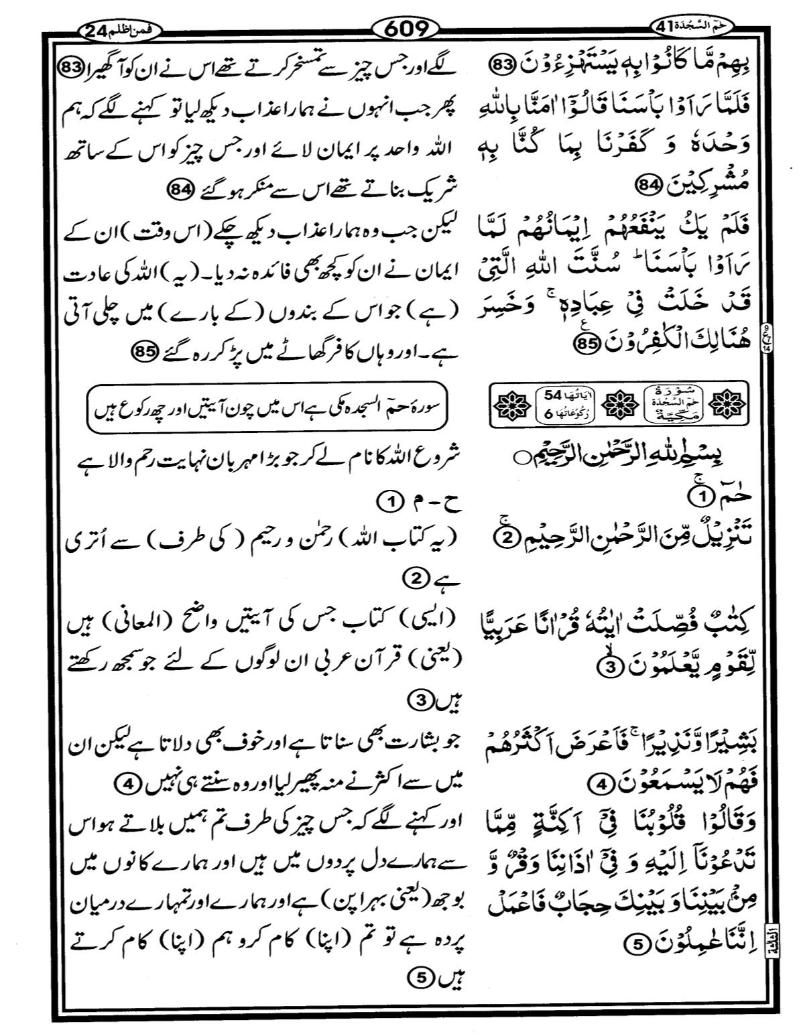 حٰمٓ السَّجْدَة 41
609
فمن اظلم 24
بِهِمْ مَّا كَانُوْا بِهٖ يَسْتَهْزِءُوْنَ 83
فَلَمَّا رَاَوْا بَاْسَنَا قَالُوْٓا اٰمَنَّا بِاللّٰهِ
وَحْدَهٗ وَ كَفَرْنَا بِمَا كُنَّا بِهٖ
مُشْرِكِيْنَ 84
فَلَمْ يَكُ يَنْفَعُهُمْ اِيْمَانُهُمْ لَمَّا
رَاَوْا بَاْسَنَا ؕ سُنَّتَ اللّٰهِ الَّتِيْ
قَدْ خَلَتْ فِيْ عِبَادِهٖ ۚ وَخَسِرَ
هُنَالِكَ الْكٰفِرُوْنَ 85
سُوْرَةُ حٰمٓ السَّجْدَة مَكِّيَّةٌ
اٰيَاتُهَا 54
رُكُوْعَاتُهَا 6
بِسْمِ اللّٰهِ الرَّحْمٰنِ الرَّحِيْمِ
حٰمٓ ۚ 1
تَنْزِيْلٌ مِّنَ الرَّحْمٰنِ الرَّحِيْمِ ۚ 2
كِتٰبٌ فُصِّلَتْ اٰيٰتُهٗ قُرْاٰنًا عَرَبِيًّا
لِّقَوْمٍ يَّعْلَمُوْنَ ۙ 3
بَشِيْرًا وَّنَذِيْرًا ۚ فَاَعْرَضَ اَكْثَرُهُمْ
فَهُمْ لَا يَسْمَعُوْنَ 4
وَقَالُوْا قُلُوْبُنَا فِيْٓ اَكِنَّةٍ مِّمَّا
تَدْعُوْنَآ اِلَيْهِ وَ فِيْٓ اٰذَانِنَا وَقْرٌ وَّ
مِنْۢ بَيْنِنَا وَ بَيْنِكَ حِجَابٌ فَاعْمَلْ
اِنَّنَا عٰمِلُوْنَ 5
لگے اور جس چیز سے تمسخر کرتے تھے اس نے ان کو آ گھیرا 83
پھر جب انہوں نے ہمارا عذاب دیکھ لیا تو کہنے لگے کہ ہم
اللہ واحد پر ایمان لائے اور جس چیز کو اس کے ساتھ
شریک بناتے تھے اس سے منکر ہو گئے 84
لیکن جب وہ ہمارا عذاب دیکھ چکے (اس وقت) ان کے
ایمان نے ان کو کچھ بھی فائدہ نہ دیا۔ (یہ) اللہ کی عادت
(ہے) جو اس کے بندوں (کے بارے) میں چلی آتی
ہے۔ اور وہاں کافر گھاٹے میں پڑ کر رہ گئے 85
سورۂ حمٓ السجدہ مکی ہے اس میں چون آیتیں اور چھ رکوع ہیں
شروع اللہ کا نام لے کر جو بڑا مہربان نہایت رحم والا ہے
ح - م 1
(یہ کتاب اللہ) رحمٰن و رحیم (کی طرف) سے اُتری
ہے 2
(ایسی) کتاب جس کی آیتیں واضح (المعانی) ہیں
(یعنی) قرآن عربی ان لوگوں کے لئے جو سمجھ رکھتے
ہیں 3
جو بشارت بھی سناتا ہے اور خوف بھی دلاتا ہے لیکن ان
میں سے اکثر نے منہ پھیر لیا اور وہ سنتے ہی نہیں 4
اور کہنے لگے کہ جس چیز کی طرف تم ہمیں بلاتے ہو اس
سے ہمارے دل پردوں میں ہیں اور ہمارے کانوں میں
بوجھ (یعنی بہرا پن) ہے اور ہمارے اور تمہارے درمیان
پردہ ہے تو تم (اپنا) کام کرو ہم (اپنا) کام کرتے
ہیں 5
الثلثة